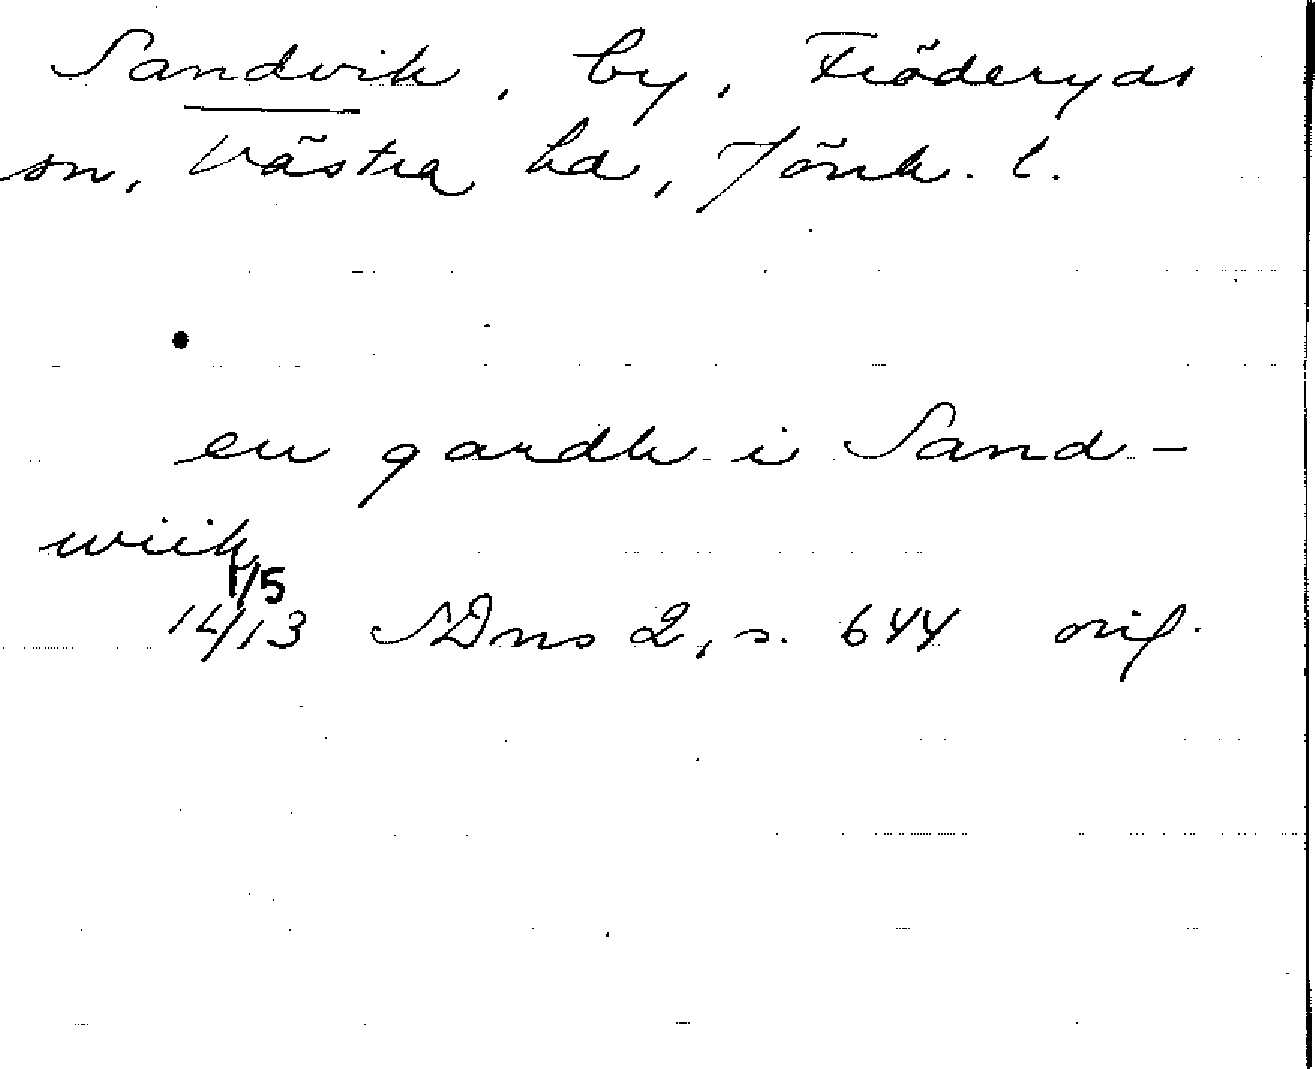 Sandvik, by, Fröderyds
sn, Västra hd, Jönk. l.
en gardh i Sand-
wiik
1/5
1413 SDns 2, s. 644 orig.